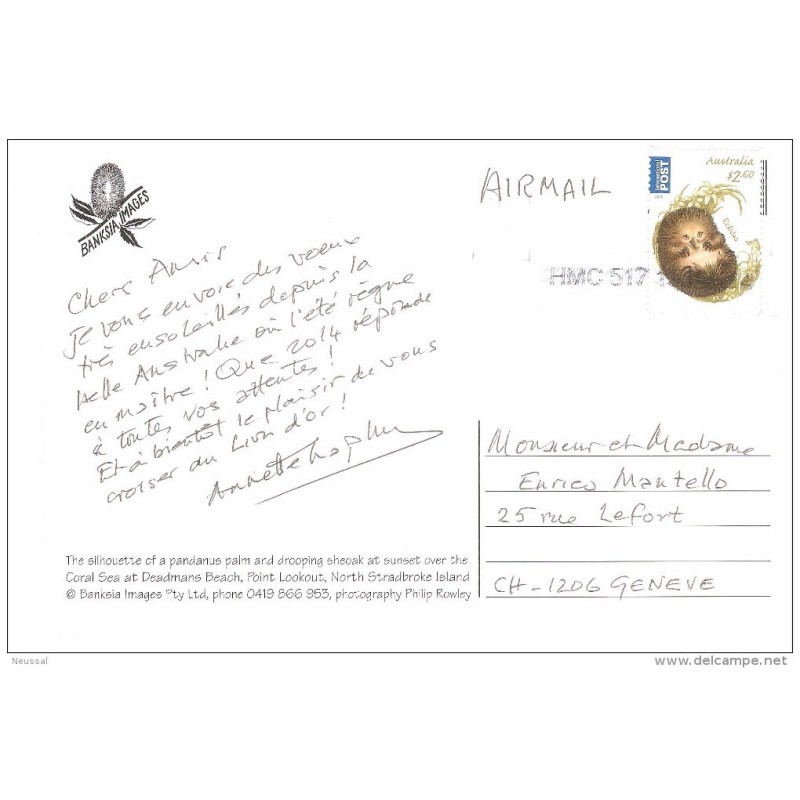 BANKSIA IMAGES
AIRMAIL
International POST
Australia
$2.60
Echidna
HMC 517
Chers Amis
Je vous envoie des voeux
très ensoleillés depuis la
belle Australie où l'été règne
en maître ! Que 2014 réponde
à toutes vos attentes !
Et à bientôt le plaisir de vous
croiser au Lion d'or !
Annette
Monsieur et Madame
Enrico Mantello
25 rue Lefort
CH-1206 GENEVE
The silhouette of a pandanus palm and drooping sheoak at sunset over the
Coral Sea at Deadmans Beach, Point Lookout, North Stradbroke Island
© Banksia Images Pty Ltd, phone 0419 866 953, photography Philip Rowley
Neussal
www.delcampe.net